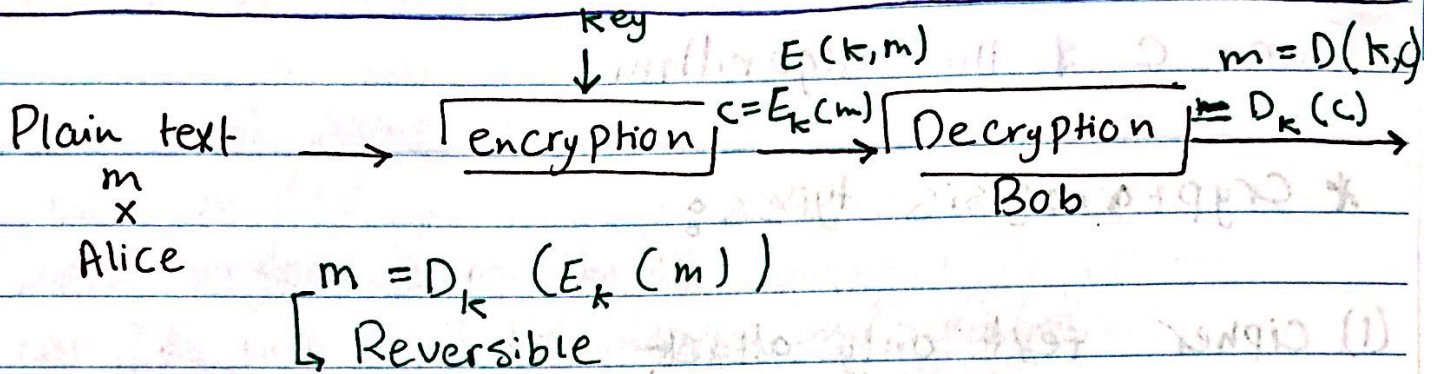 key
E(k,m) m = D(k,c)
Plain text encryption c=E_k(m) Decryption = D_k(c)
m
x Bob
Alice
m = D_k (E_k (m))
Reversible